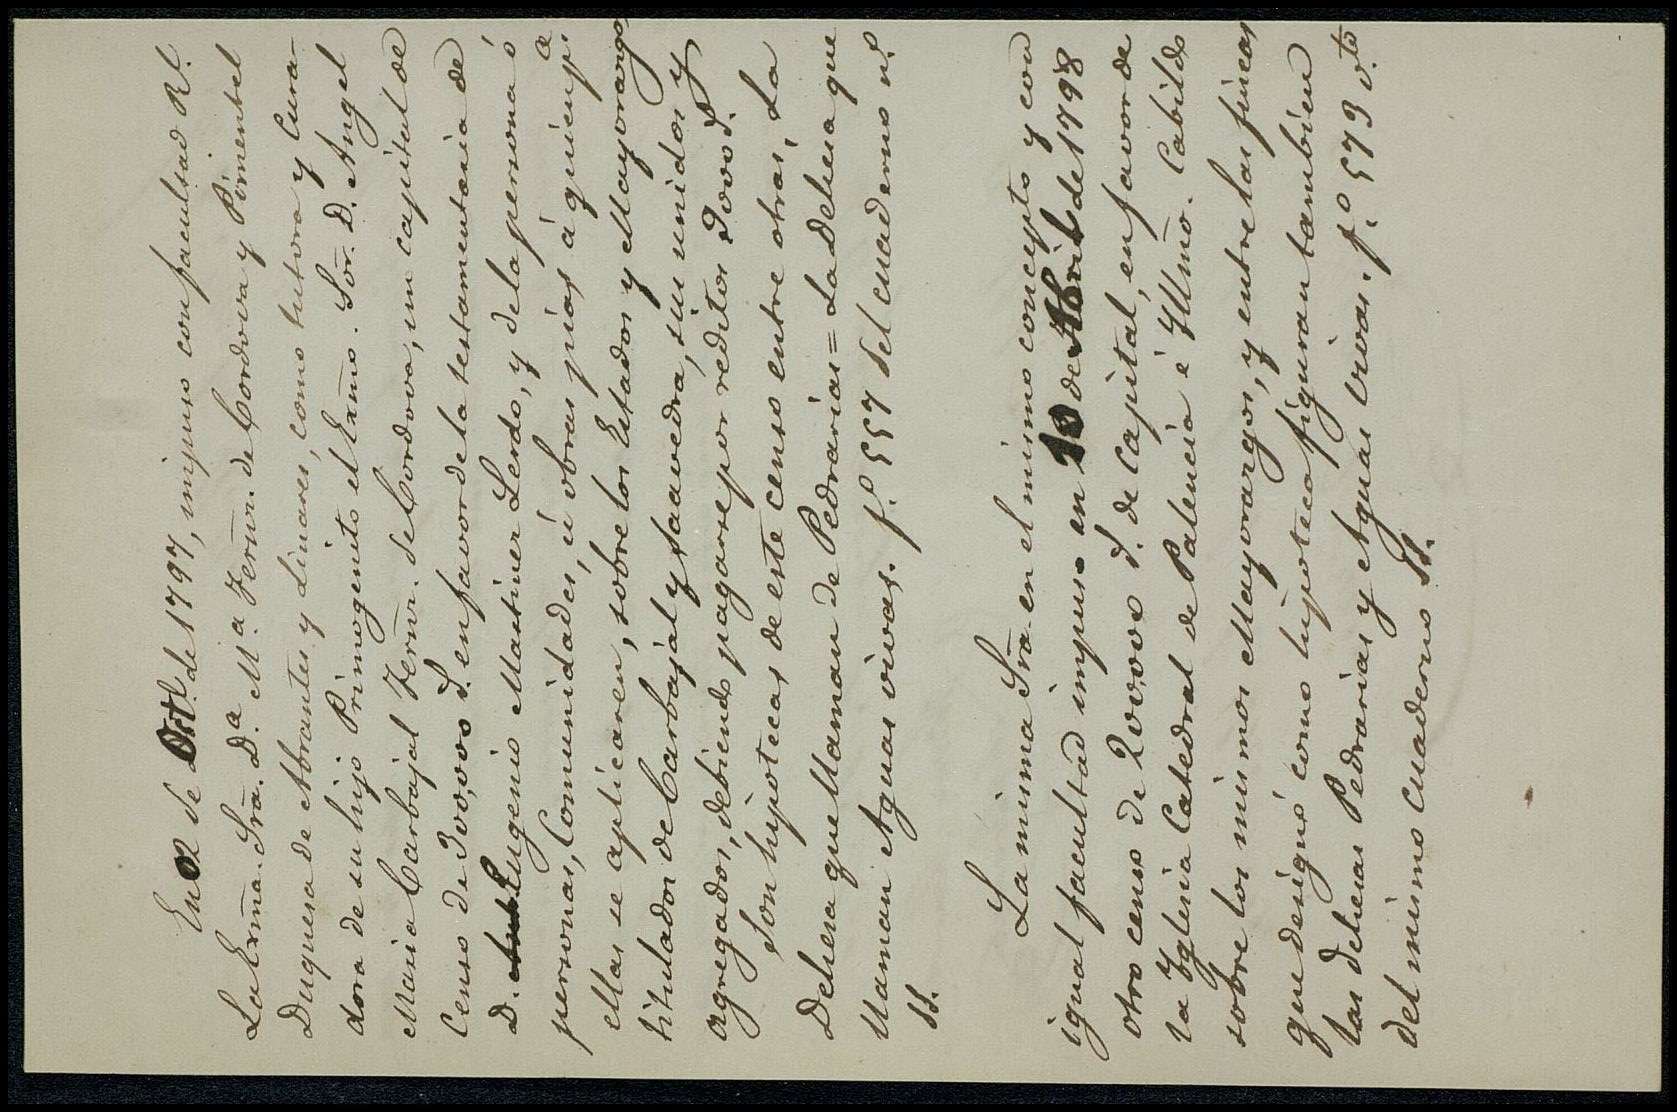 En 2 de Oct.e de 1797, impuso con facultad Rl.
La Exma. Sra. D.a M.a Fernz. de Cordova y Pimentel
Duquesa de Abrantes y Linares, como tutora y Cura-
dora de su hijo Primogenito el Exmo. Sor. D. Angel
Maria Carbajal Fernz. de Cordova, un capital de
Censo de 300,000 r. en favor de la testamentaria de
D. Eugenio Martinez Lerdo, y de la persona ó
personas, Comunidades, ú obras pias á quien p.a
ellas se aplicaren, sobre los Estados y Mayorazgos
titulados de Carbajal y Saavedra, sin unidos y
agregados, debiendo pagarse por reditos 9000 r.
Son hipotecas de este censo entre otras, La
Dehesa que llaman de Pedrarias = La Dehesa que
llaman Aguas vivas. f.o 557 del cuaderno n.o
11.
La misma Sra. en el mismo concepto y con
igual facultad impuso en 10 de Abril de 1798
otro censo de 200,000 r. de Capital, en favor de
la Yglesia Catedral de Palencia é Yllmo. Cabildo
sobre los mismos Mayorazgos, y entre las fincas
que designó como hipoteca figuran tambien
las dehesas Pedrarias y Aguas vivas. f.o 573 v.to
del mismo cuaderno 11.